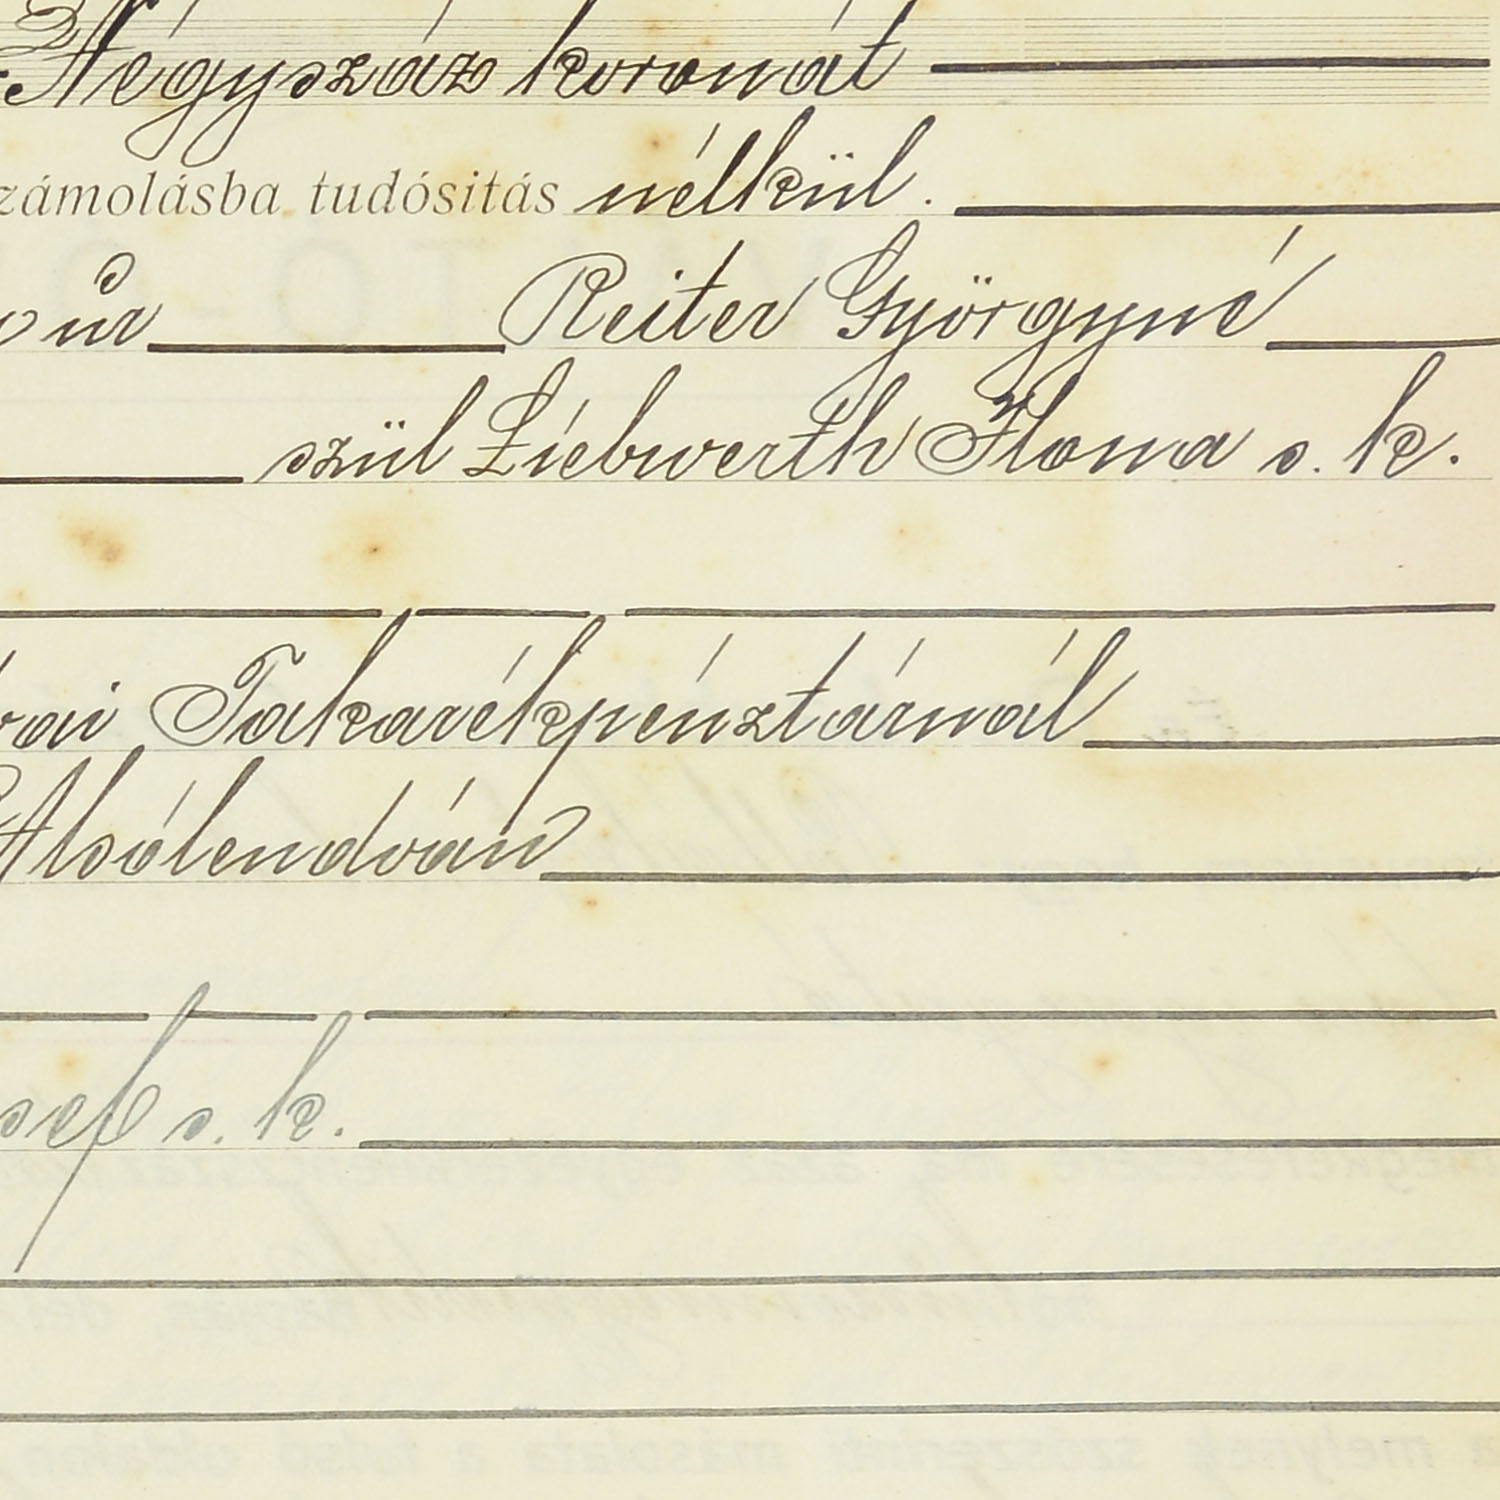 Négyszáz koronát
zámolásba tudósitás nélkül.
ur Reiter Györgyné
szül Liebwerth Ilona s. k.
vai Takarékpénztárnál
Alsólendván
sef s. k.